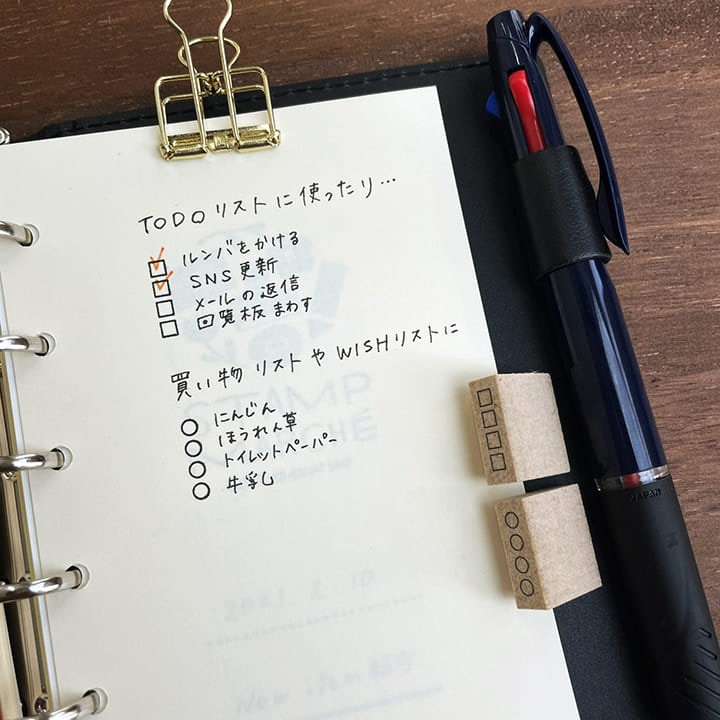 TODOリストに使ったり…
ルンバをかける
SNS更新
メールの返信
回覧板まわす
買い物リストやWISHリストに
にんじん
ほうれん草
トイレットペーパー
牛乳
JAPAN